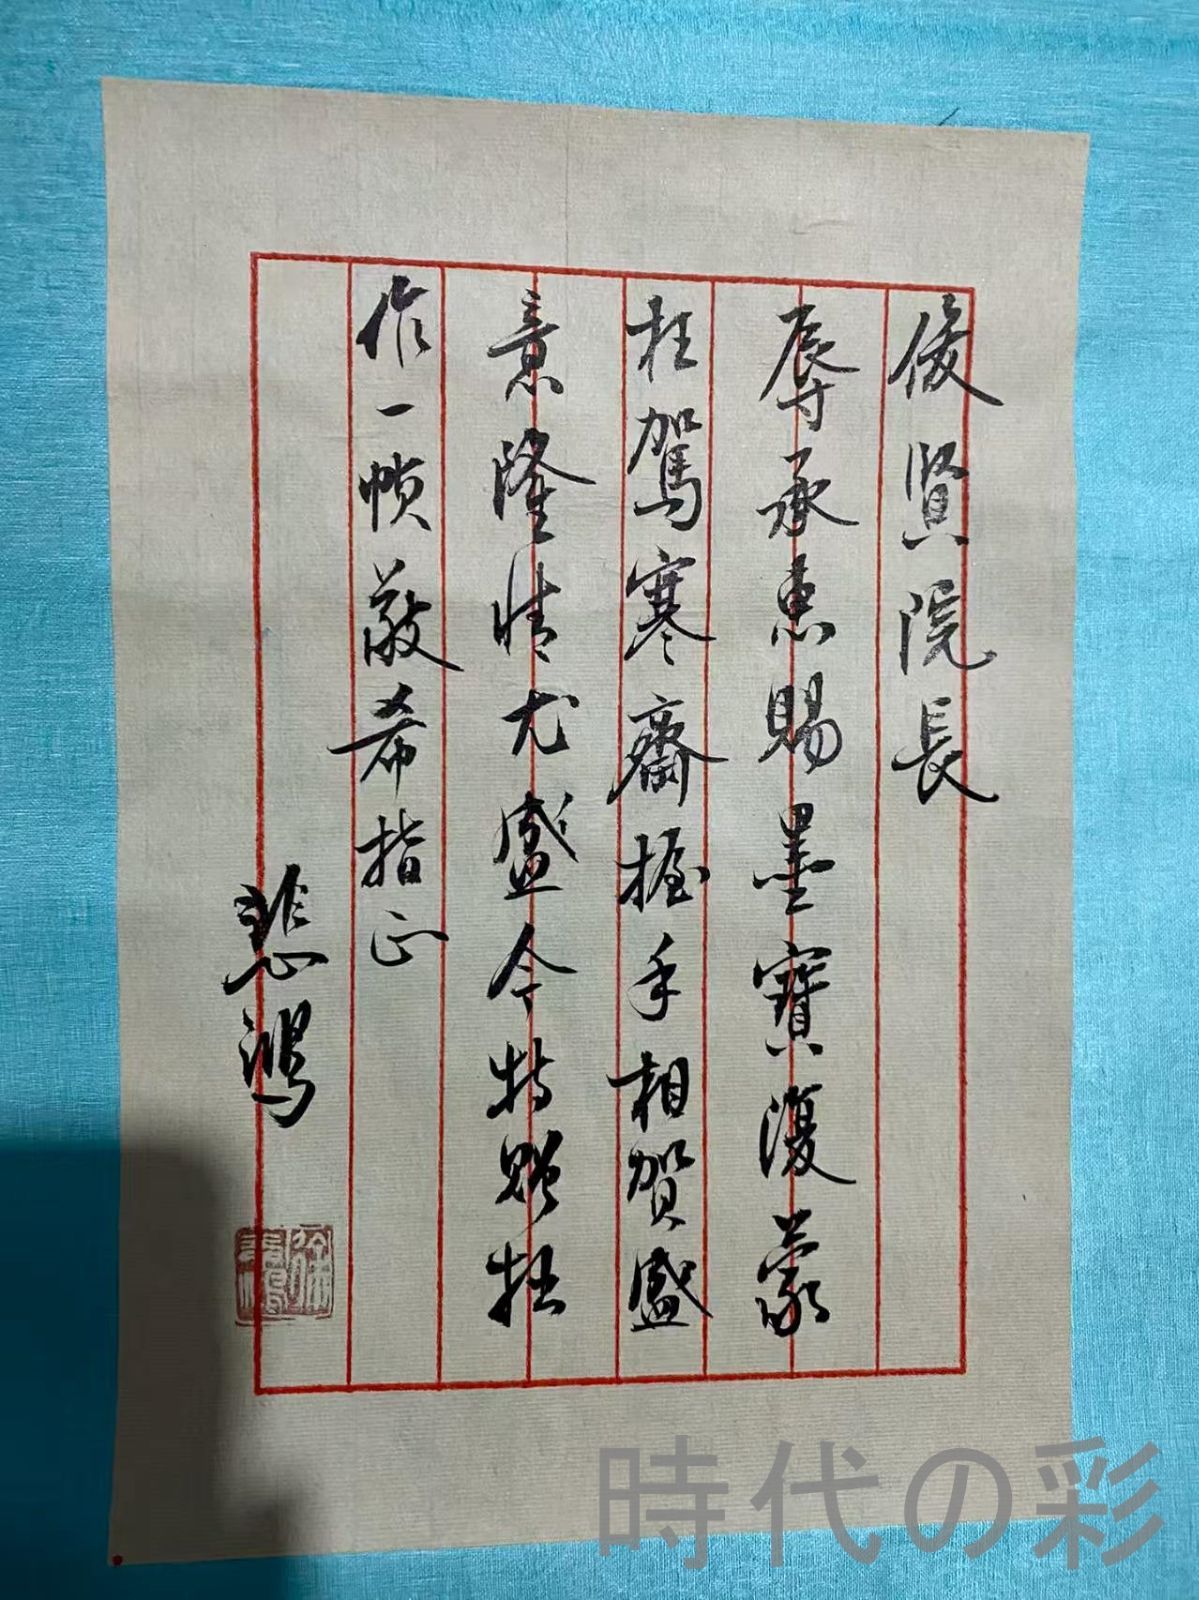 俊賢院長
辱承惠賜墨寶復蒙
枉駕寒齋握手相賀盛
意隆情尤盛今特贈拙
作一幀敬希指正
悲鴻
時代の彩